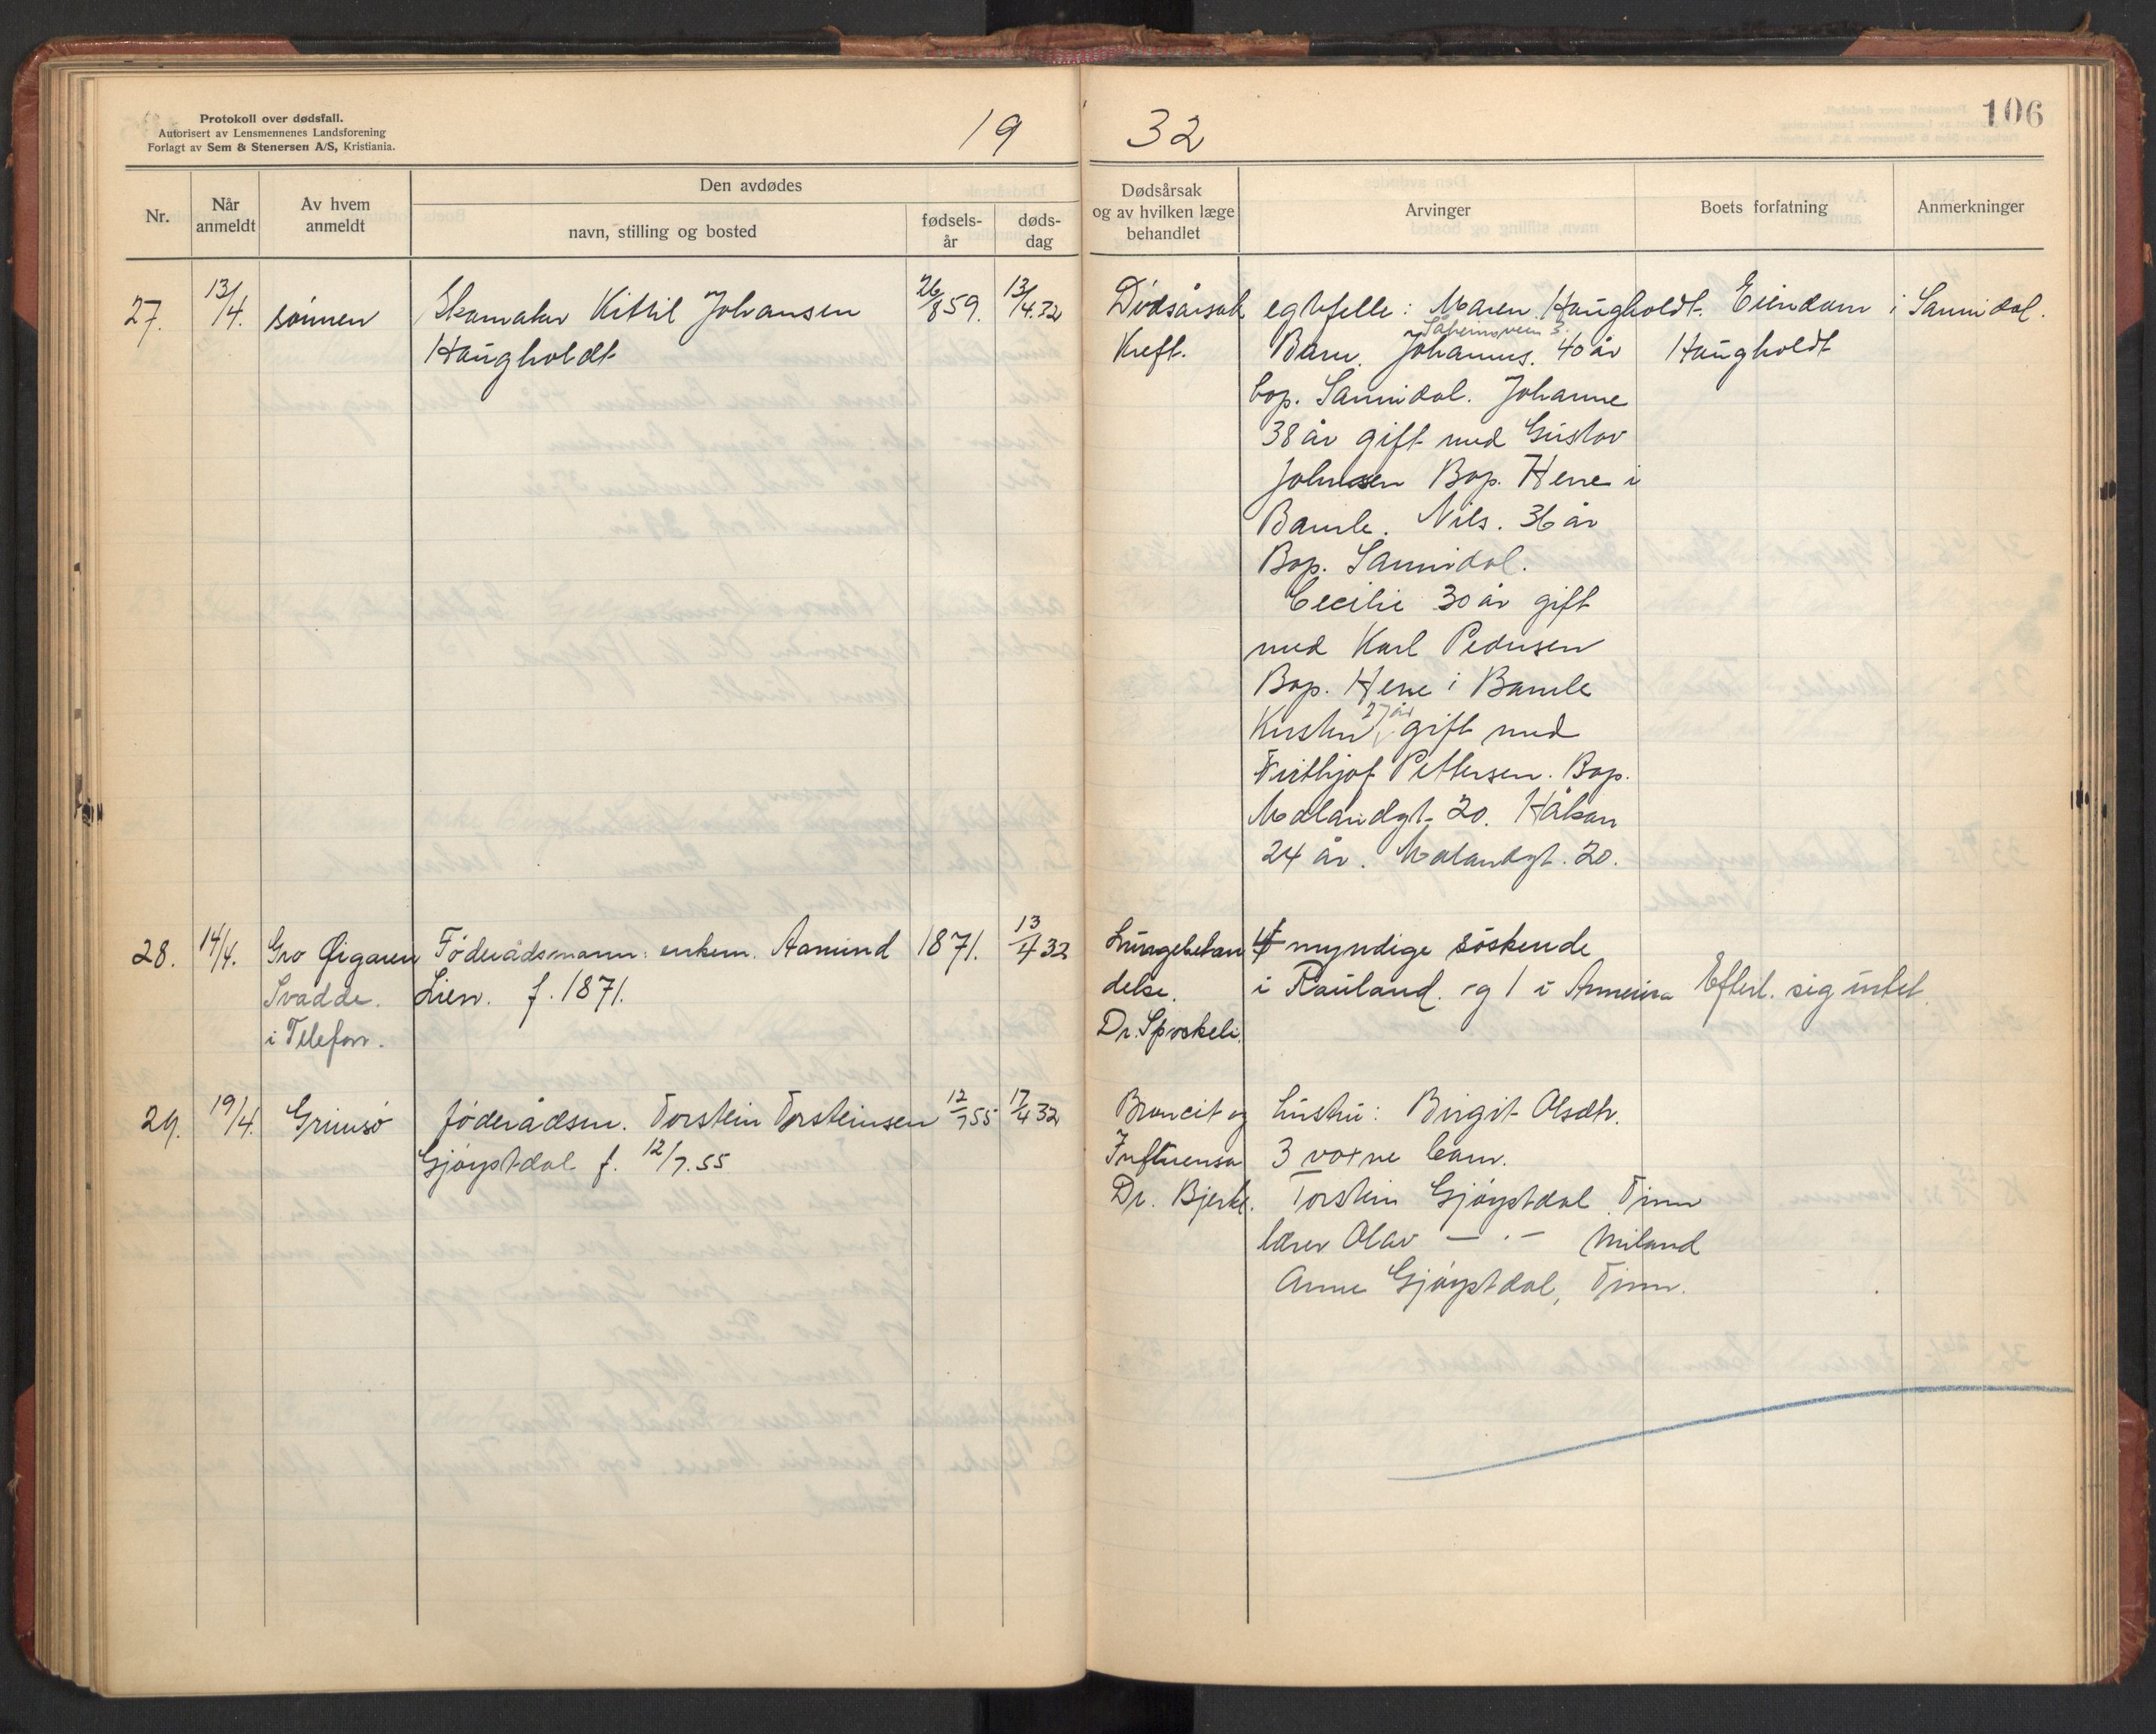 Protokoll over dødsfall.
Autorisert av Lensmennenes Landsforening
Forlagt av Sem & Stenersen A/S, Kristiania.
19
32
106
Nr.
Når anmeldt
Av hvem anmeldt
Den avdødes
navn, stilling og bosted
fødsels-år
døds-dag
Dødsårsak og av hvilken læge behandlet
Arvinger
Boets forfatning
Anmerkninger
27. 13/4. sønnen Skomaker Kittil Johansen 26/8 59. 13/4.32
Haugholdt
Dødsårsak
Kreft.
egtefelle: Maren Haugholdt.
Barn. Johannes. 40 år
bop. Sannidal. Johanne
38 år gift med Gustav
Johnsen Bop. Herre i
Bamle. Nils. 36 år
Bop. Sannidal.
Cecilie 30 år gift
med Karl Pedersen
Bop. Herre i Bamle
Kirsten 27 år gift med
Frithjof Pettersen. Bop.
Mælandgt. 20. Håkon
24 år. Mælandgt. 20.
Eiendom i Sannidal.
Haugholdt
28. 14/4. Gro Øigaren Føderådsmann: enkem. Aamund 1871. 13/4 32
Svadde. Lien. f. 1871.
i Telefon.
Lungebetændelse.
Dr. Sproskeli.
4 myndige søskende
i Rauland. og 1 i Amerika
Efterl. sig intet.
29. 19/4. Grimsø føderådsm. Torstein Torsteinsen 12/7 55 17/4 32
Gjøystdal f. 12/7.55
Broncit og
Influensa
Dr. Bjerke.
hustru: Birgit Olsdtr.
3 voxne barn.
Torstein Gjøystdal Tinn
lærer Olav — . — Miland
Anne Gjøystdal, Tinn.